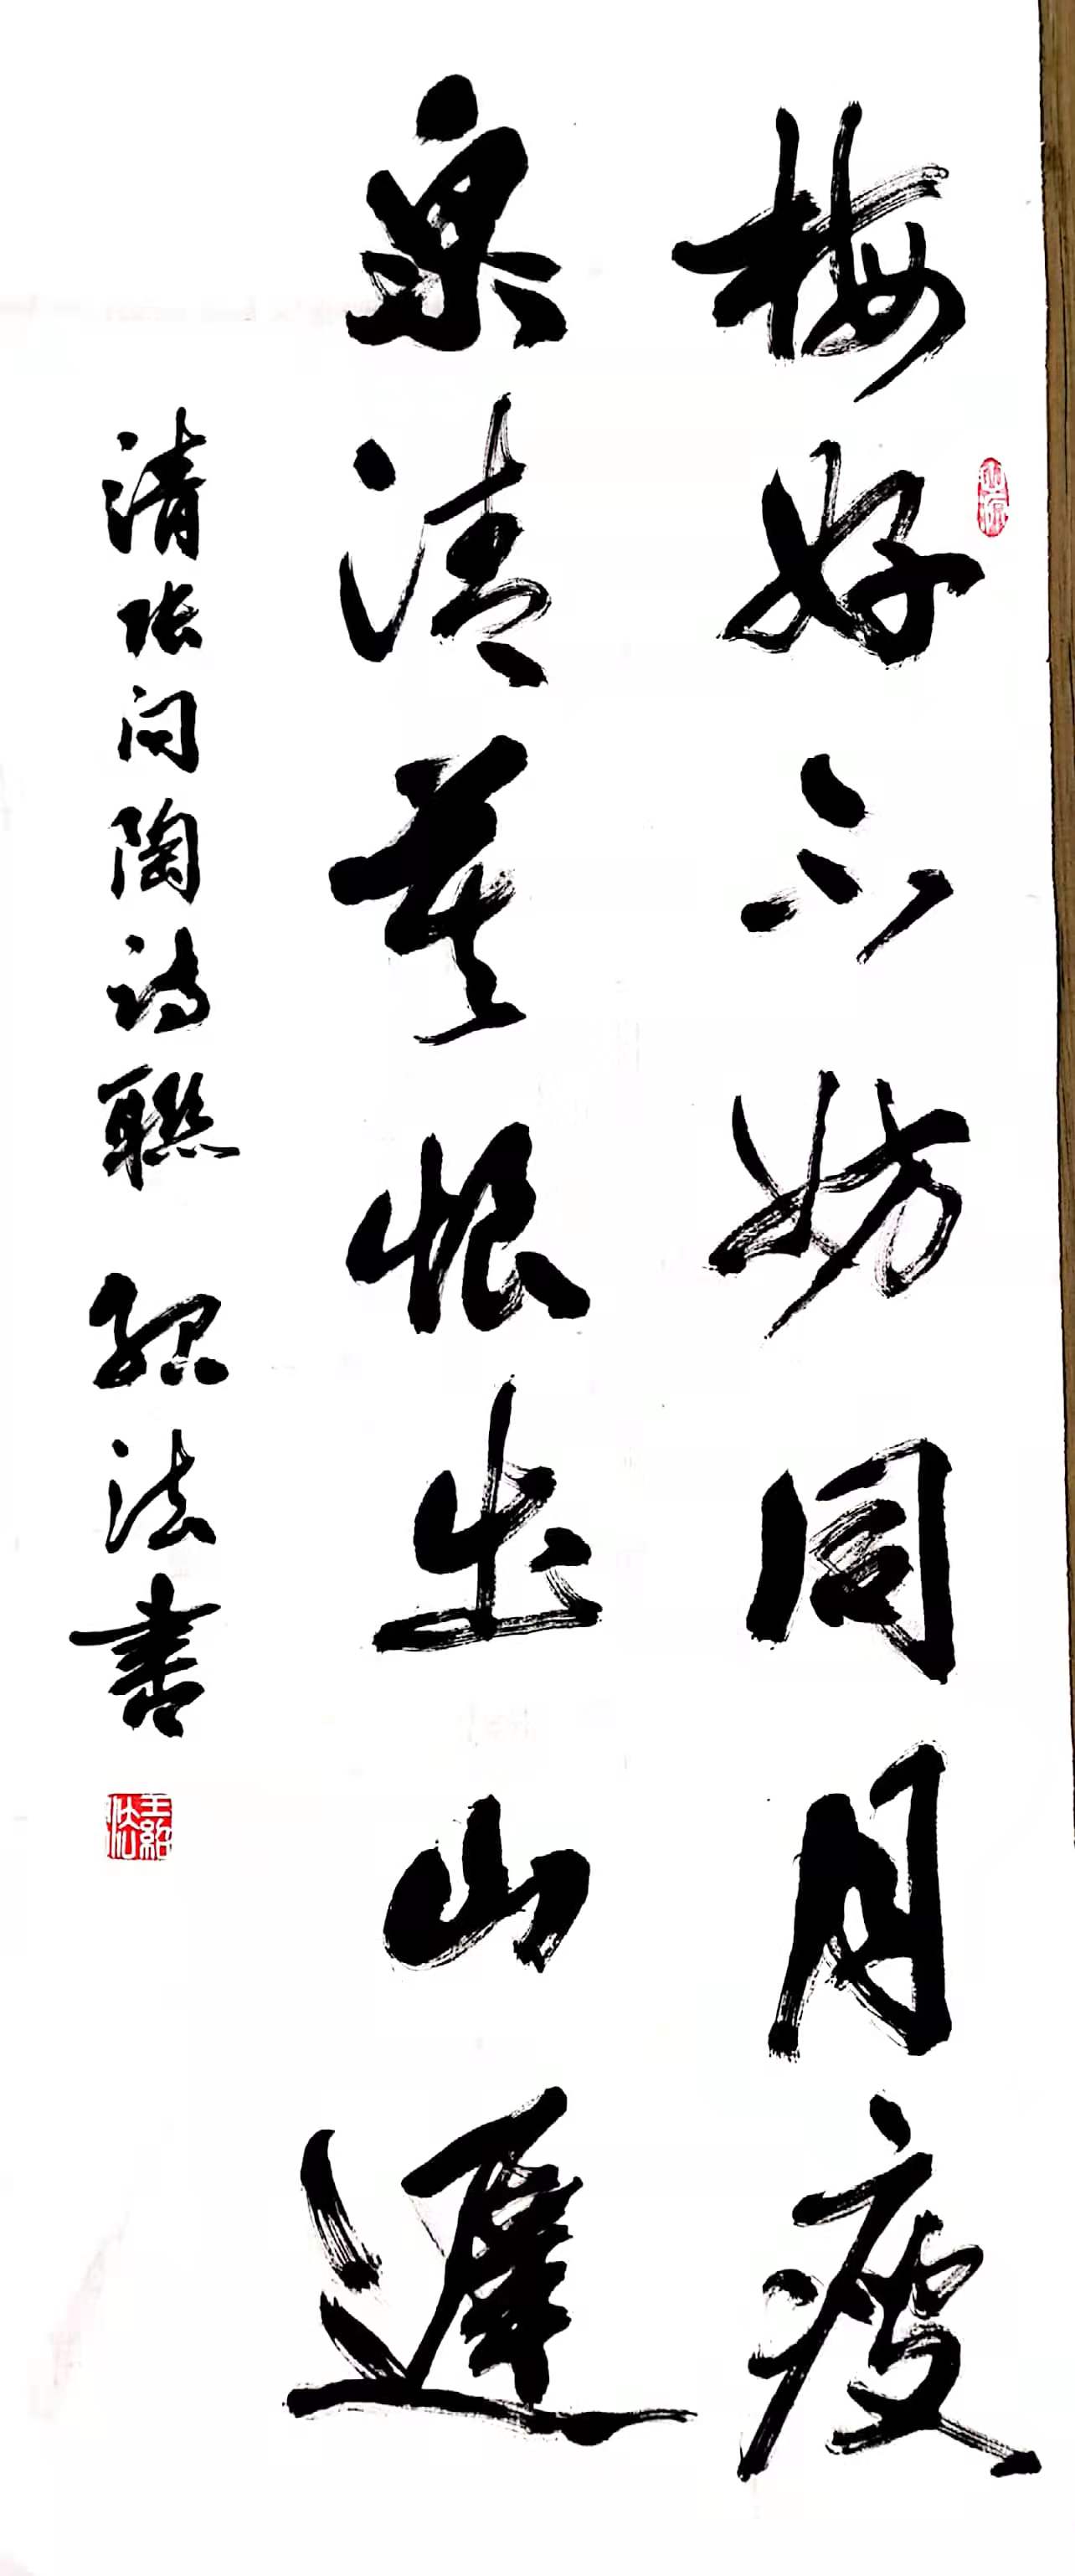 梅好不妨同月瘦
泉清莫恨出山遲
清张问陶诗聯 紹法書
王紹法